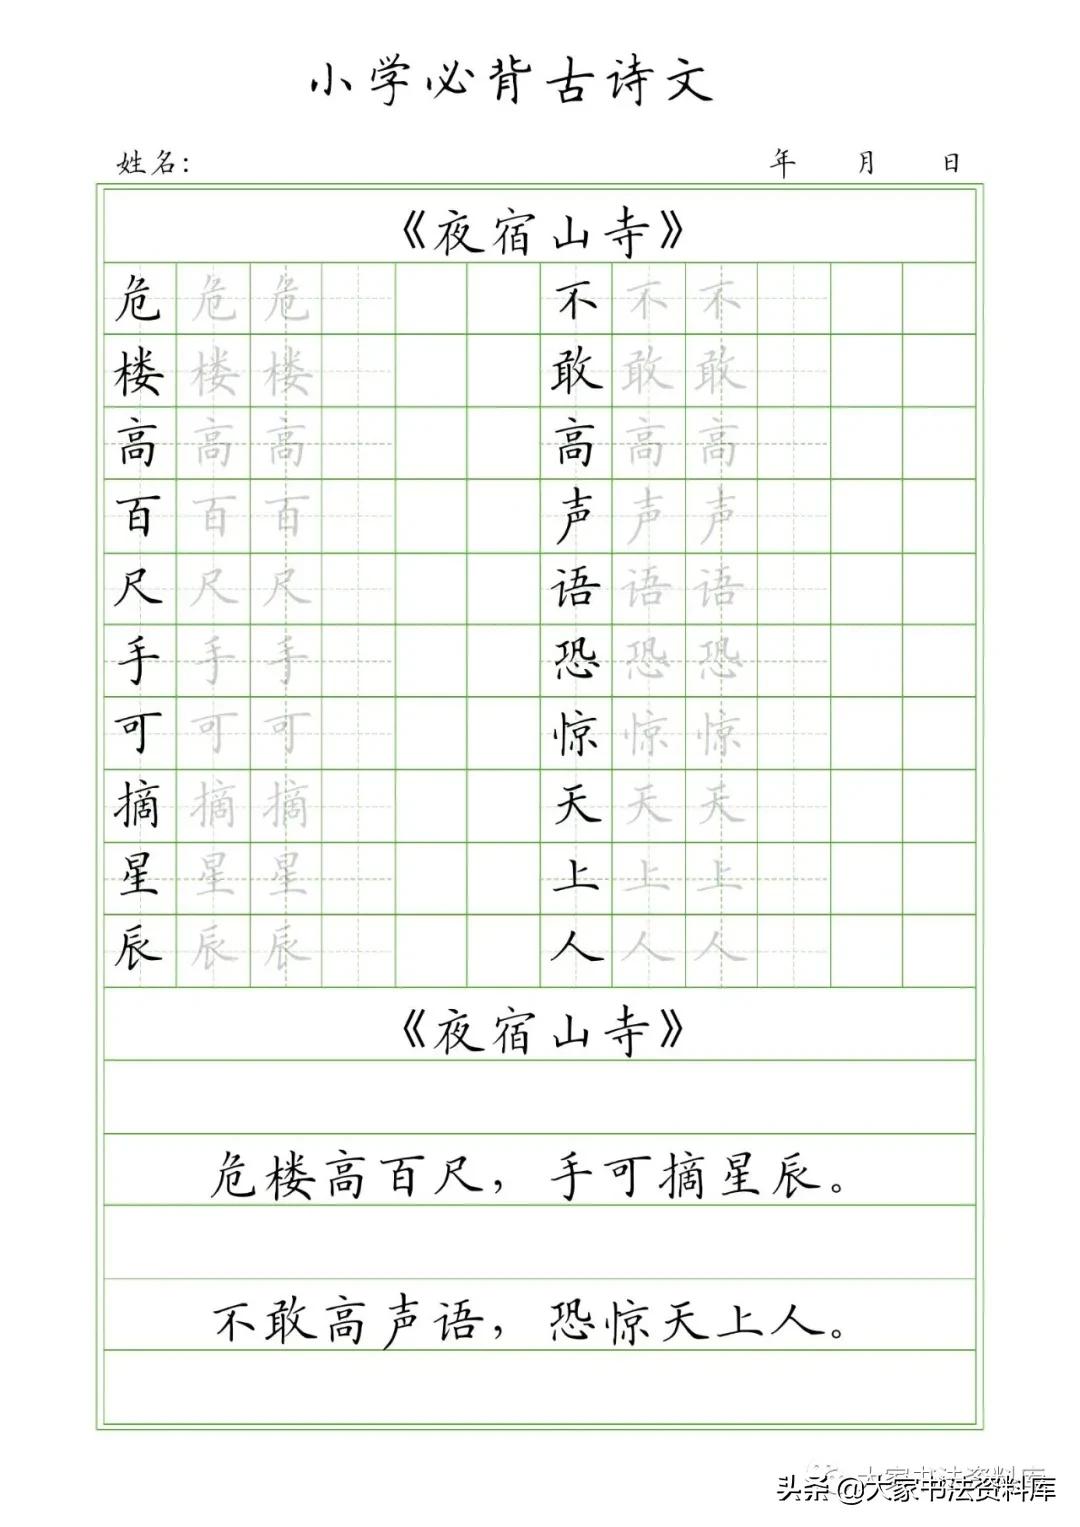 小学必背古诗文
姓名： 年 月 日
《夜宿山寺》
危 危 危 不 不 不
楼 楼 楼 敢 敢 敢
高 高 高 高 高 高
百 百 百 声 声 声
尺 尺 尺 语 语 语
手 手 手 恐 恐 恐
可 可 可 惊 惊 惊
摘 摘 摘 天 天 天
星 星 星 上 上 上
辰 辰 辰 人 人 人
《夜宿山寺》
危楼高百尺，手可摘星辰。
不敢高声语，恐惊天上人。
大家书法资料库
头条 @大家书法资料库